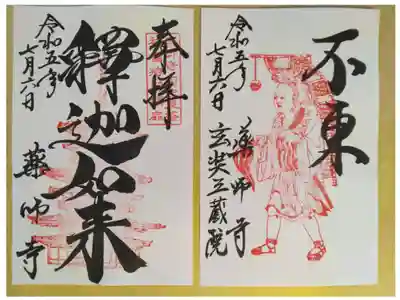 奉拝
釋迦如来
令和五年
七月六日
薬師寺
不東
薬師寺
玄奘三蔵院
令和五年
七月六日